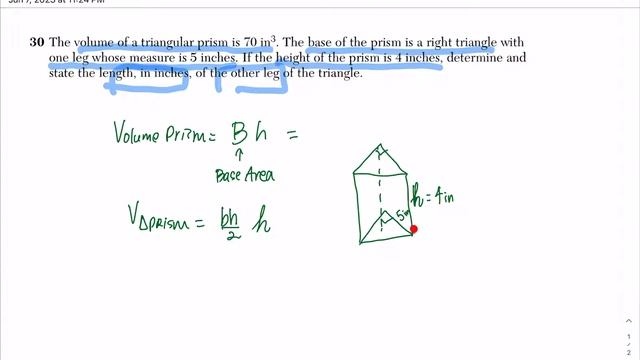 Jun 7, 2023 at 11:24 PM
30 The volume of a triangular prism is 70 in³. The base of the prism is a right triangle with
one leg whose measure is 5 inches. If the height of the prism is 4 inches, determine and
state the length, in inches, of the other leg of the triangle.
Volume Prism = B h =
↑
Base Area
V△prism = bh/2 h
h = 4in
5in
1
/
2